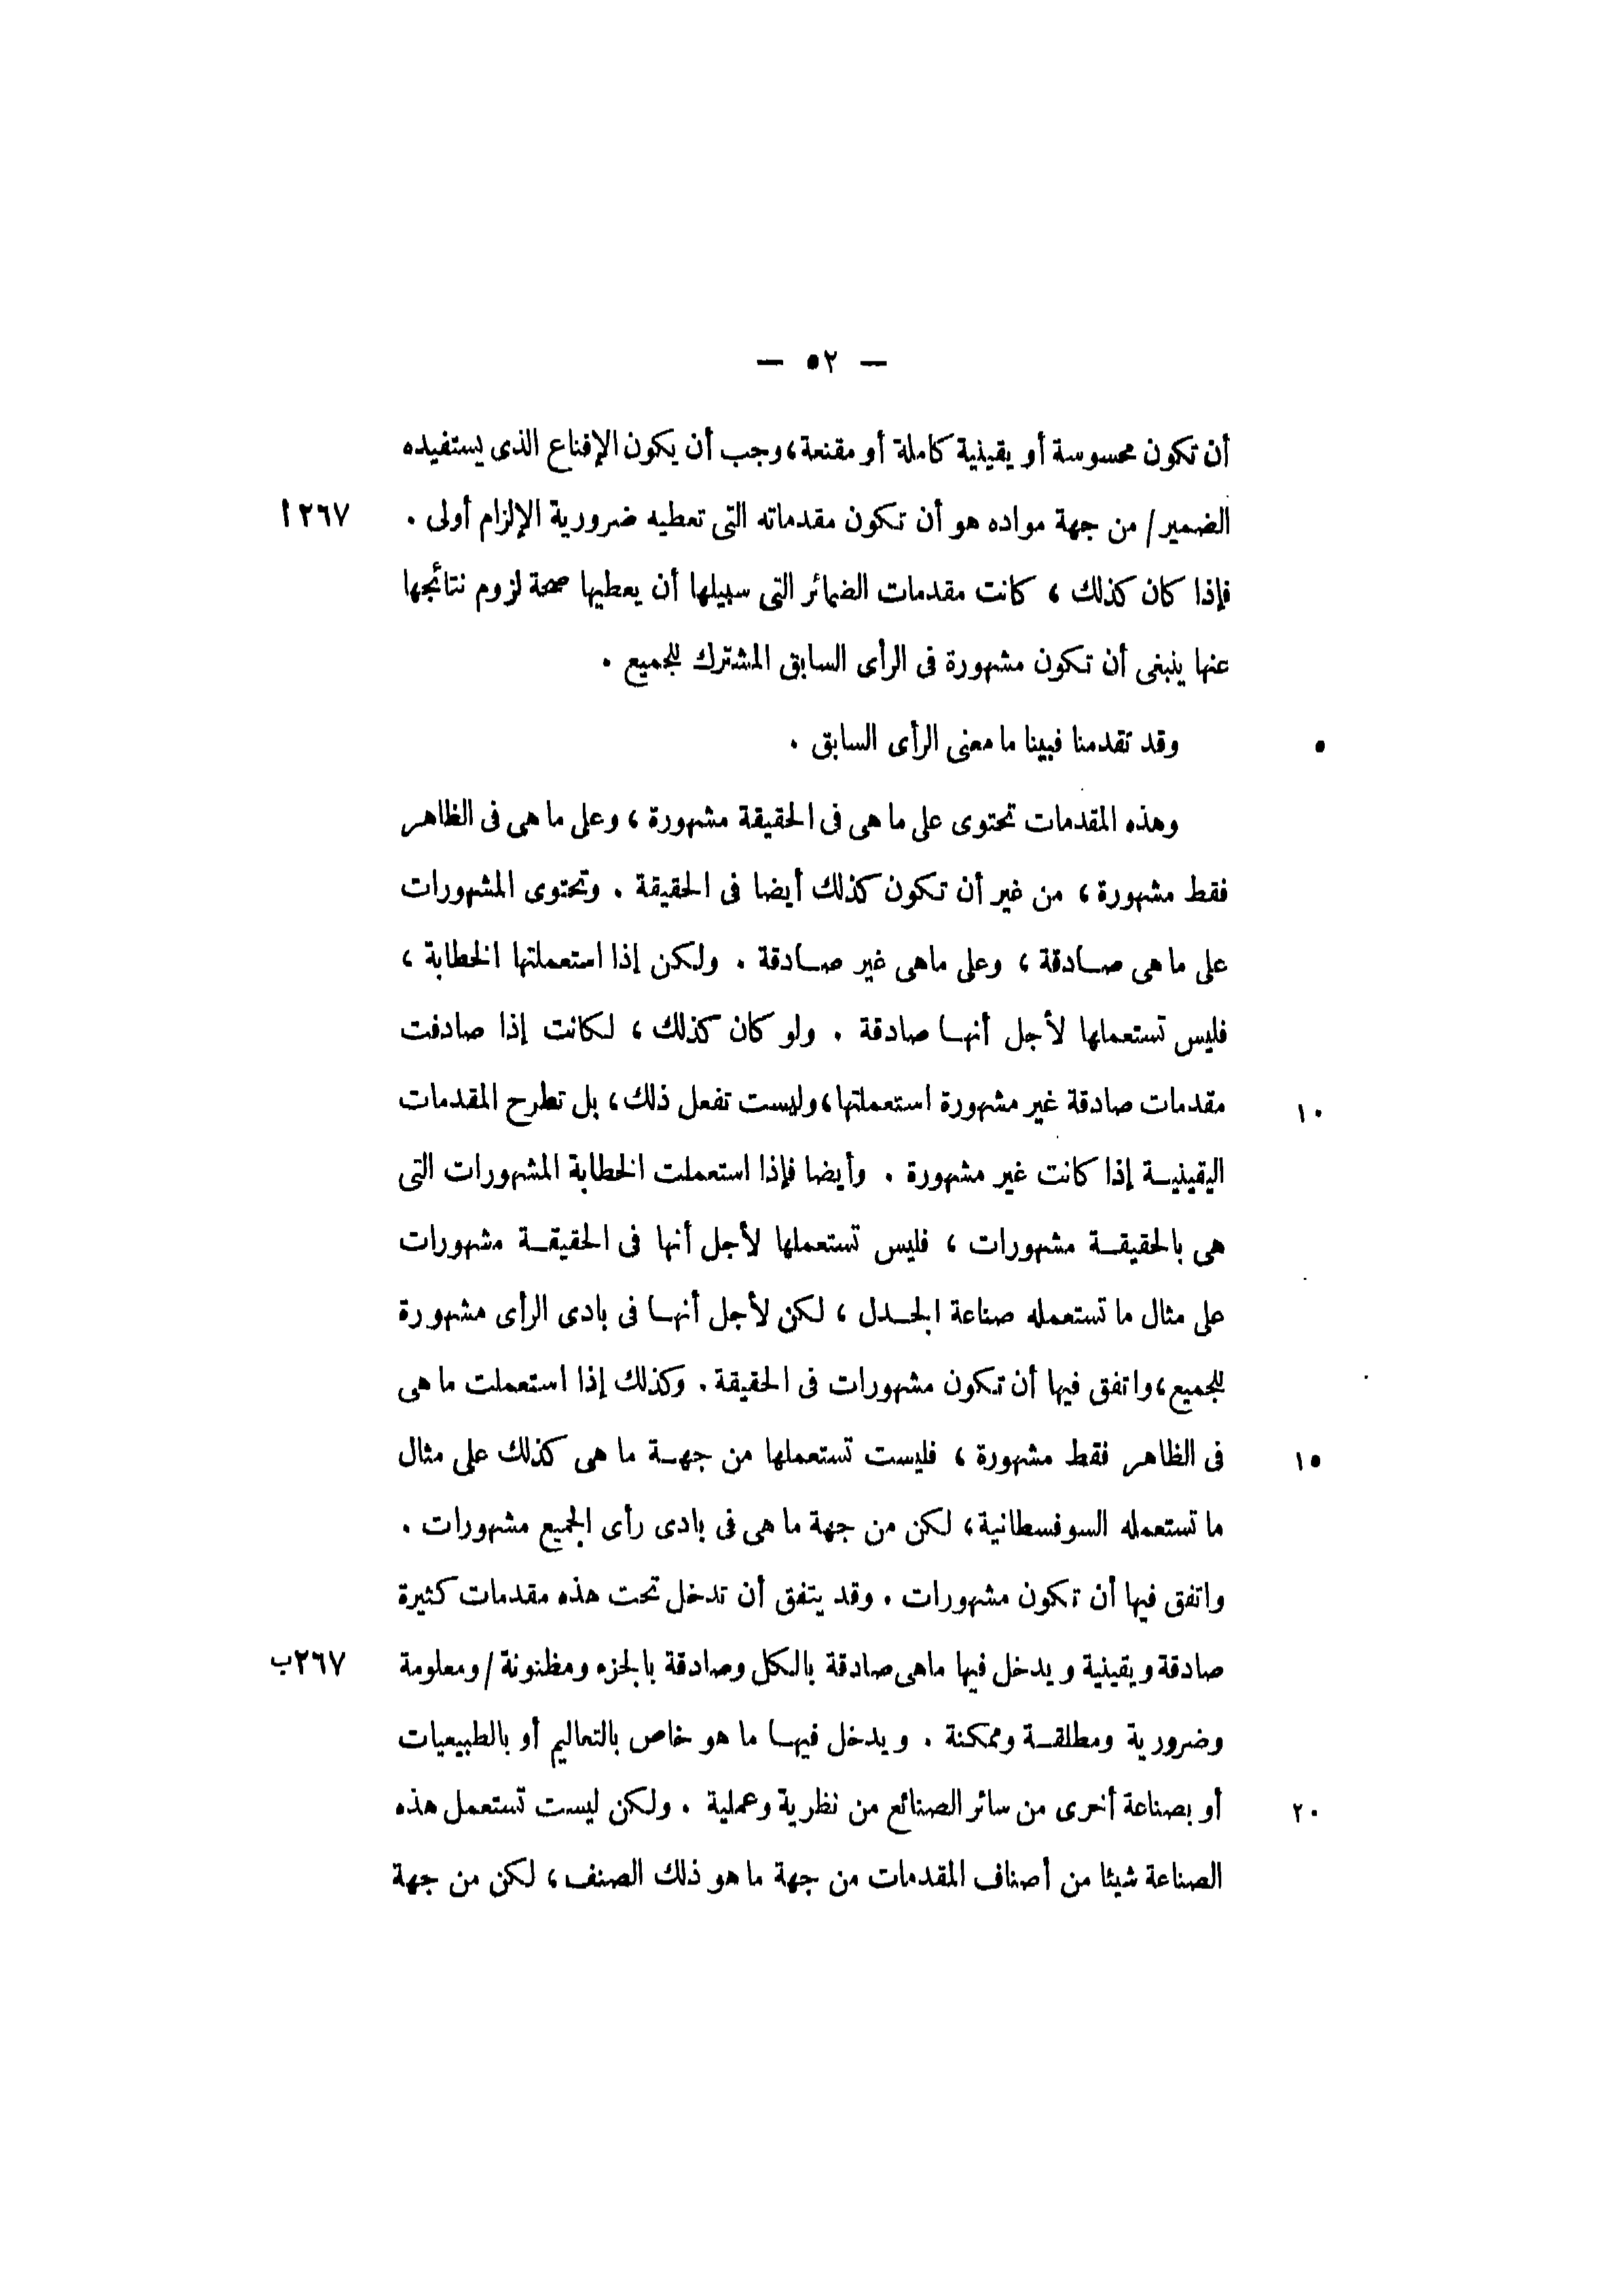 — ٥٢ —
أن تكون محسوسة أو يقينية كاملة أو مقنعة، وجب أن يكون الإقناع الذى يستفيده
الضمير/ من جهة مواده هو أن تكون مقدماته التى تعطيه ضرورية الإلزام أولى . ٢٦٧ أ
فإذا كان كذلك ، كانت مقدمات الضمائر التى سبيلها أن يعطيها صحة لزوم نتائجها
عنها ينبغى أن تكون مشهورة فى الرأى السابق المشترك للجميع .
٥ وقد تقدمنا فبينا ما معنى الرأى السابق .
وهذه المقدمات تحتوى على ما هى فى الحقيقة مشهورة ، وعلى ما هى فى الظاهر
فقط مشهورة ، من غير أن تكون كذلك أيضا فى الحقيقة . وتحتوى المشهورات
على ما هى صادقة ، وعلى ماهى غير صادقة . ولكن إذا استعملتها الخطابة ،
فليس تستعملها لأجل أنها صادقة . ولو كان كذلك ، لكانت إذا صادفت
١٠ مقدمات صادقة غير مشهورة استعملتها، وليست تفعل ذلك، بل تطرح المقدمات
اليقينية إذا كانت غير مشهورة . وأيضا فإذا استعملت الخطابة المشهورات التى
هى بالحقيقة مشهورات ، فليس تستعملها لأجل أنها فى الحقيقة مشهورات
على مثال ما تستعمله صناعة الجدل ، لكن لأجل أنها فى بادى الرأى مشهورة
للجميع، واتفق فيها أن تكون مشهورات فى الحقيقة . وكذلك إذا استعملت ما هى
١٥ فى الظاهر فقط مشهورة ، فليست تستعملها من جهة ما هى كذلك على مثال
ما تستعمله السوفسطائية، لكن من جهة ما هى فى بادى رأى الجميع مشهورات .
واتفق فيها أن تكون مشهورات . وقد يتفق أن تدخل تحت هذه مقدمات كثيرة
صادقة ويقينية ويدخل فيها ماهى صادقة بالكل وصادقة بالجزء ومظنونة / ومعلومة ٢٦٧ب
وضرورية ومطلقة وممكنة . ويدخل فيها ما هو خاص بالتعاليم أو بالطبيعيات
٢٠ أو بصناعة أخرى من سائر الصنائع من نظرية وعملية . ولكن ليست تستعمل هذه
الصناعة شيئا من أصناف المقدمات من جهة ما هو ذلك الصنف ، لكن من جهة